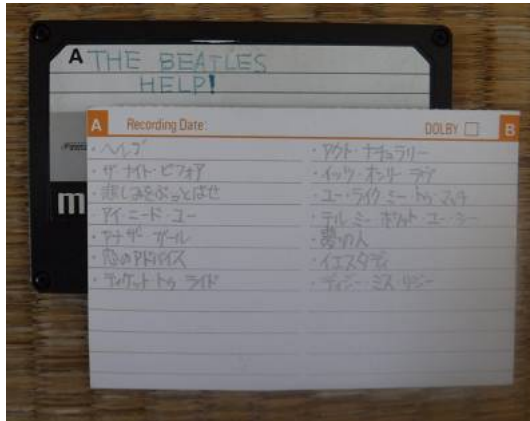 A THE BEATLES
HELP!
A Recording Date:
・ヘルプ
・ザ・ナイト・ビフォア
・悲しみをぶっとばせ
・アイ・ニード・ユー
・アナザー ガール
・恋のアドバイス
・ティケット トゥ ライド
DOLBY B
・アクト・ナチュラリー
・イッツ・オンリー ラヴ
・ユー・ライク ミー トゥ マッチ
・テル ミー ホワット・ユー・シー
・夢の人
・イエスタデイ
・ディジー・ミス・リジー